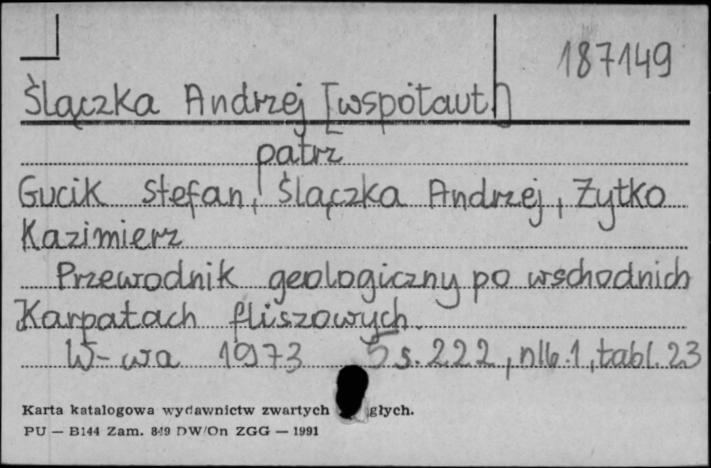 187149
Ślączka Andrzej [współaut.]
patrz
Gucik Stefan, Ślączka Andrzej, Żytko
Kazimierz
Przewodnik geologiczny po wschodnich
Karpatach fliszowych.
W-wa 1973 s. 222, nlb. 1, tabl. 23
Karta katalogowa wydawnictw zwartych głych.
PU — B144 Zam. 849 DW/On ZGG — 1991